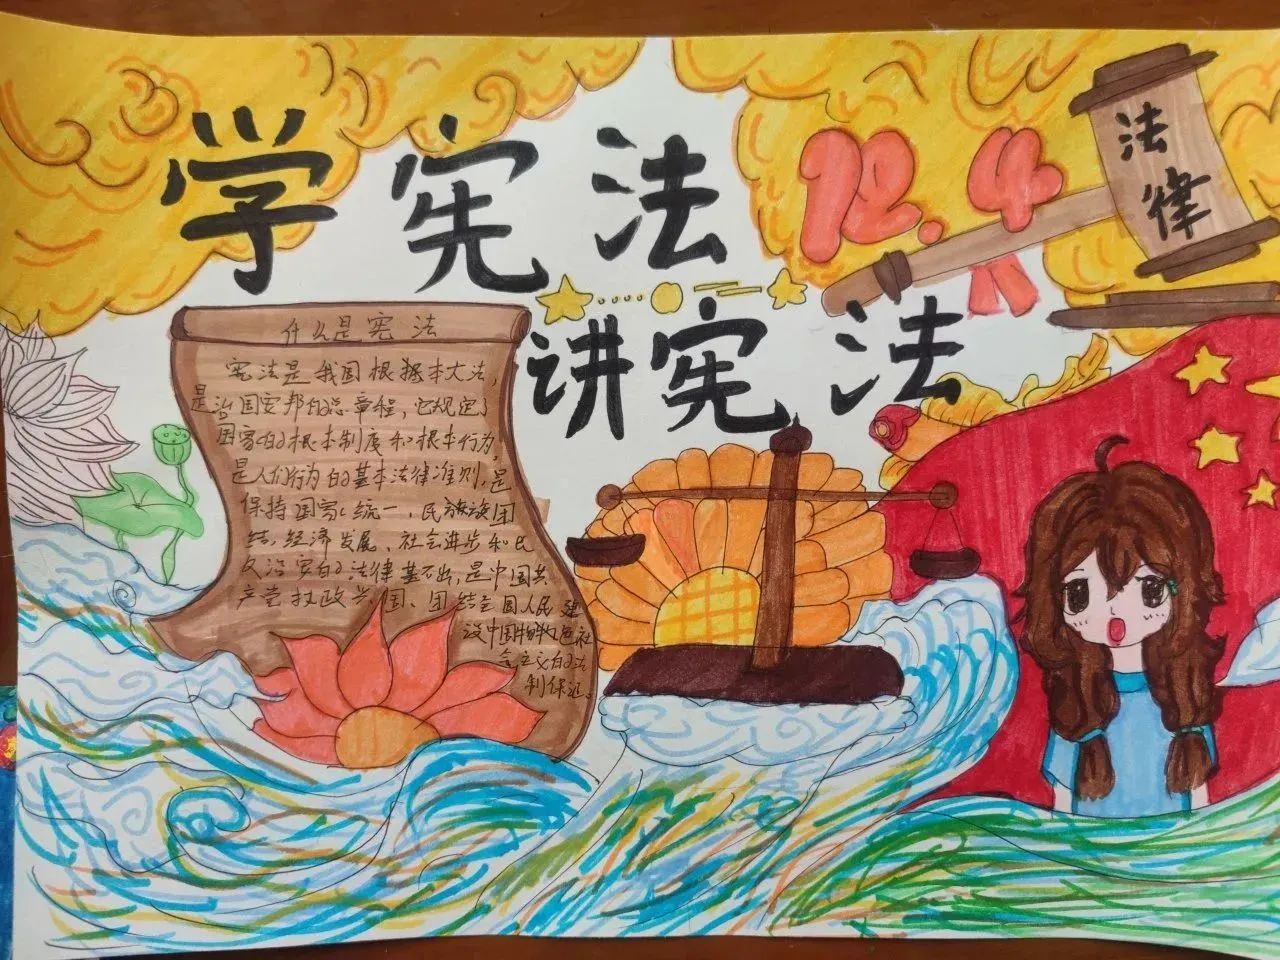 学宪法
12.4
法律
讲宪法
什么是宪法
宪法是我国根据本大法,
是治国安邦的总章程,它规定了
国家的根本制度和根本行为,
是人们行为的基本法律准则,是
保持国家统一,民族团
结,经济发展、社会进步和长
治安的法律基石出,是中国共
产党执政兴国、团结全国人民建
设中国特色社
会主义的法
制保证。